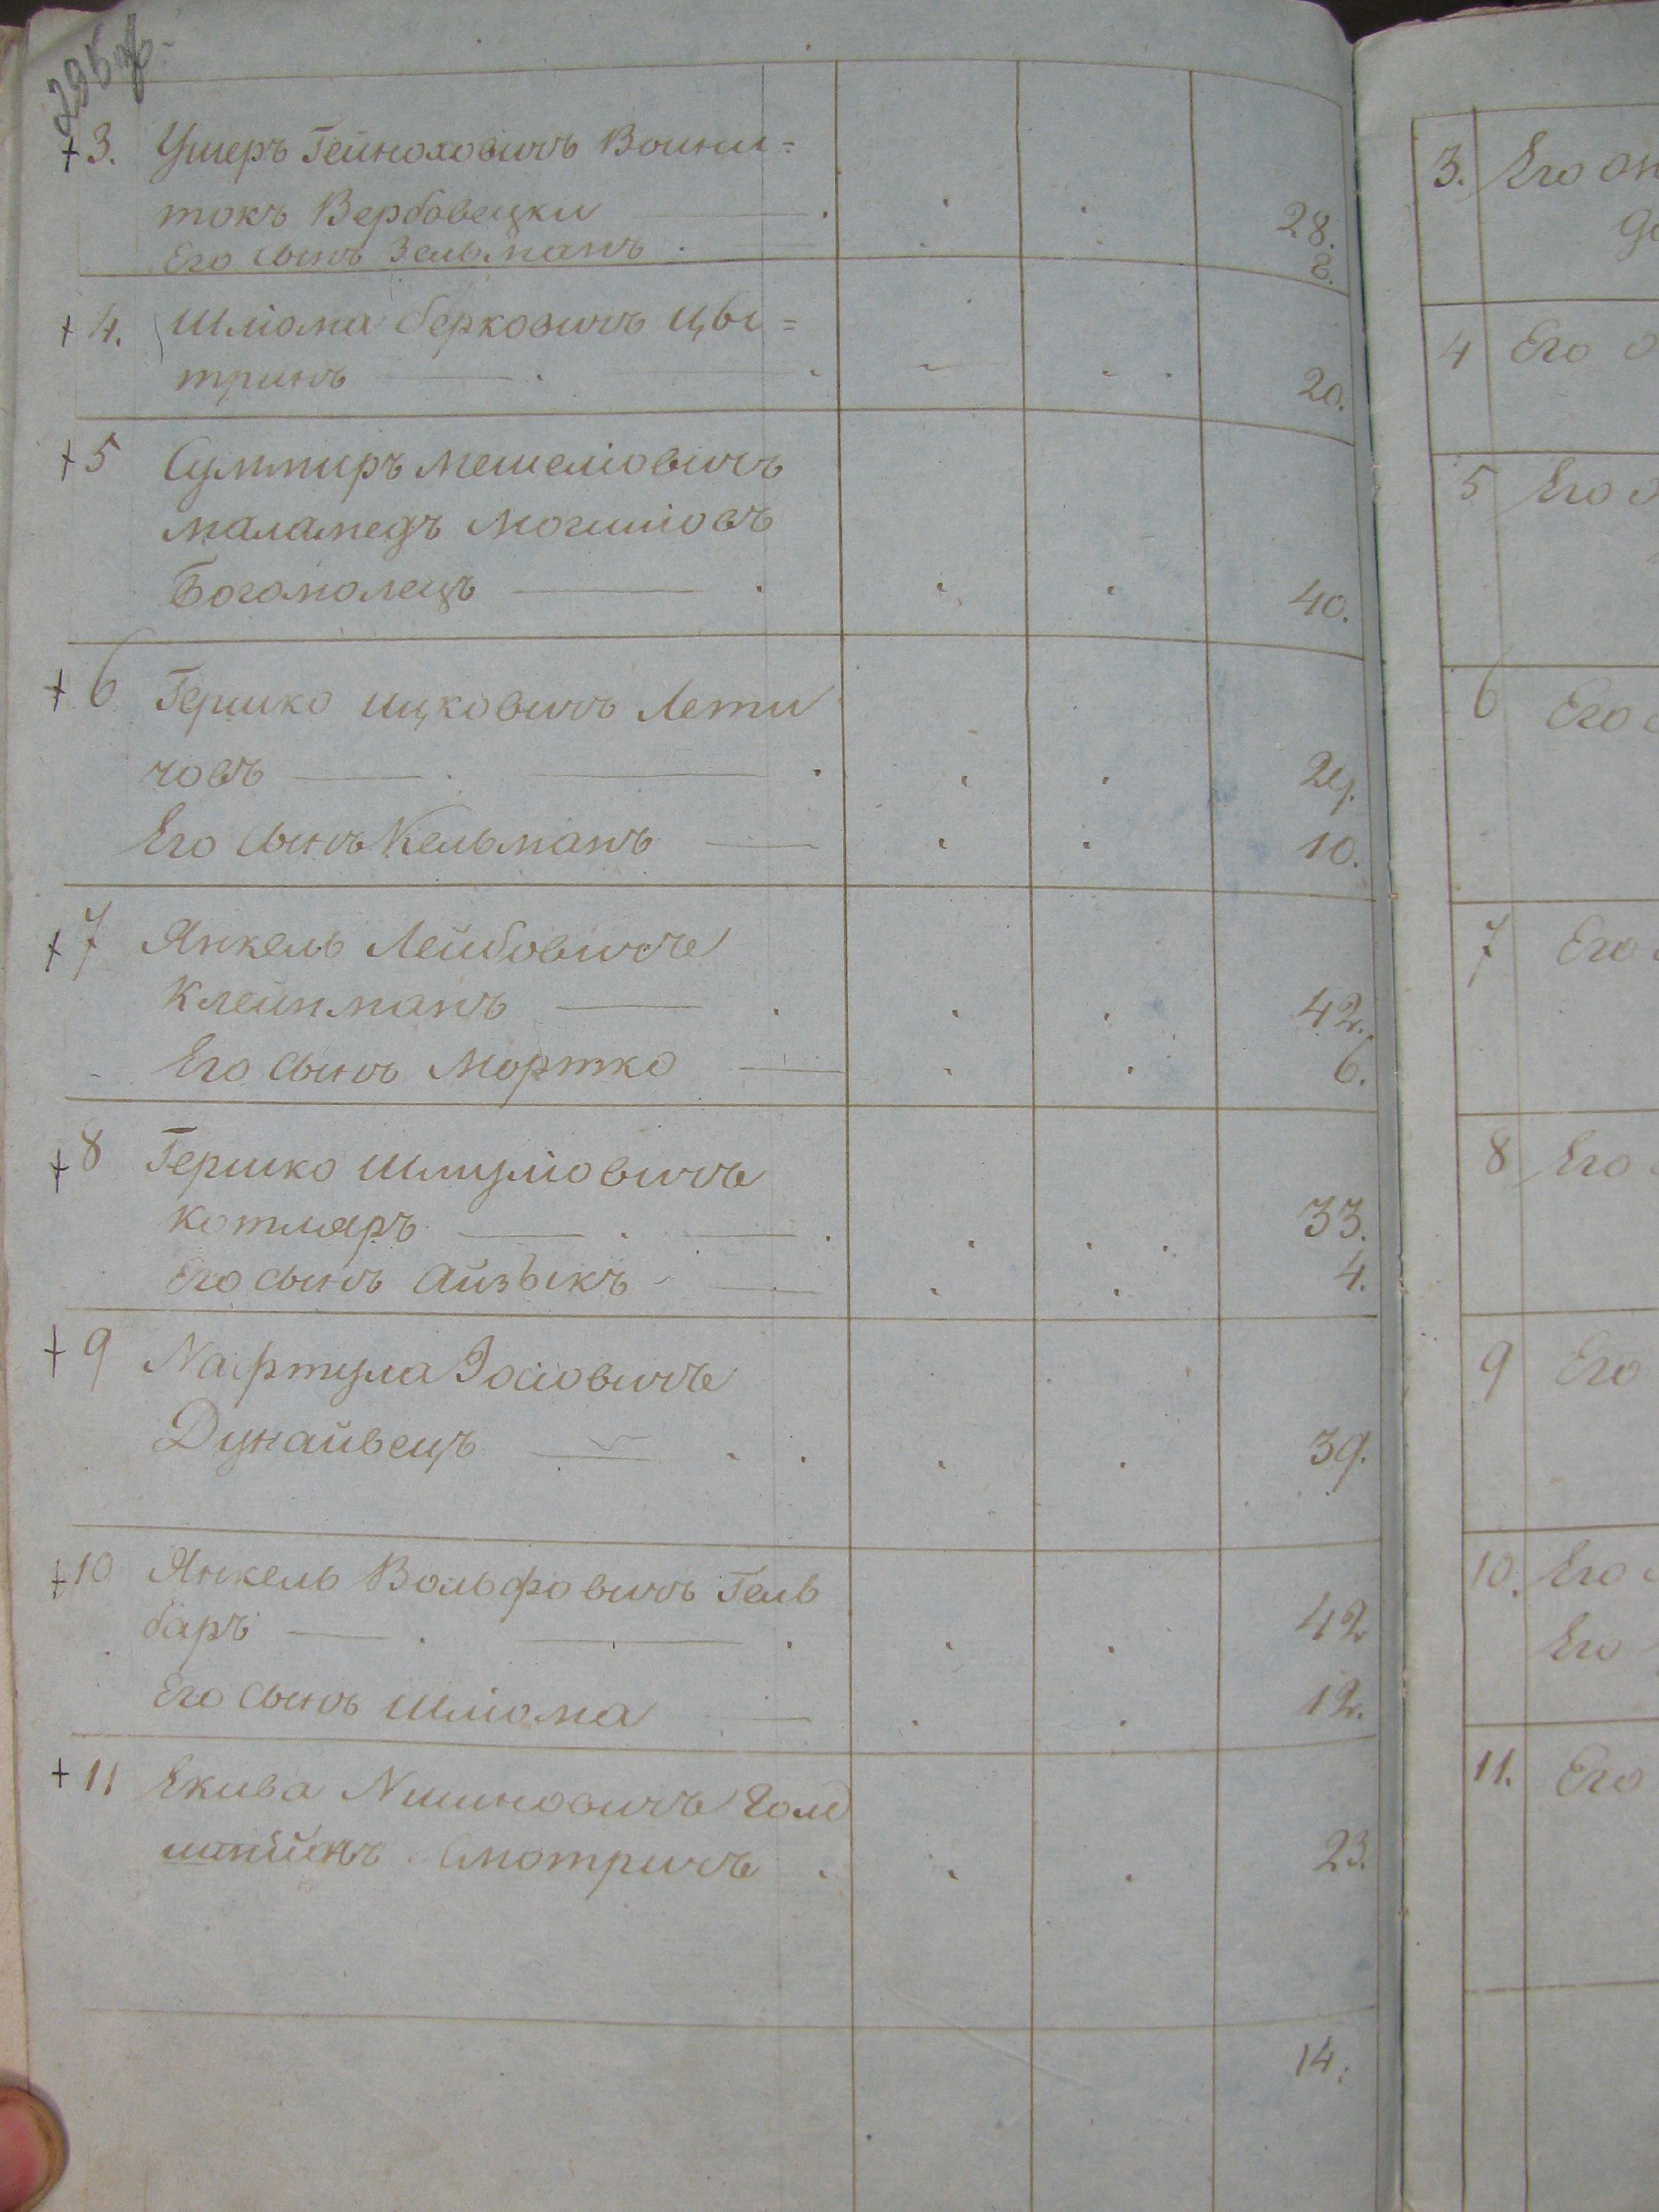 295 об.
+3. Ушеръ Гейноховичъ Воини=
токъ Вербовецки 28.
Его сынъ Зельманъ 8.
+4. Шліома Берковичъ Цві=
тринъ 20.
+5 Сумтиръ Мешеліовичъ
Маламедъ Могиліовъ
Богомолецъ 40.
+6 Гершко Ицковичъ Лети
човъ 29.
Его сынъ Кельманъ 10.
+7 Янкель Лейбовичъ
Клейнманъ 42.
Его сынъ Мортко 6.
+8 Гершко Шмуліовичъ
Котляръ 33.
Его сынъ Айзыкъ 4.
+9 Нафтула Іосіовичъ
Дунайвецъ 39.
+10 Янкель Вольфовичъ Гель
баръ 42
Его сынъ Шліома 12.
+11 Екива Нишновичъ Гол
Смотричъ 23.
14.
3. Его
4 Его
5 Его
6 Его
7 Его
8 Его
9 Его
10. Его
Его
11. Его